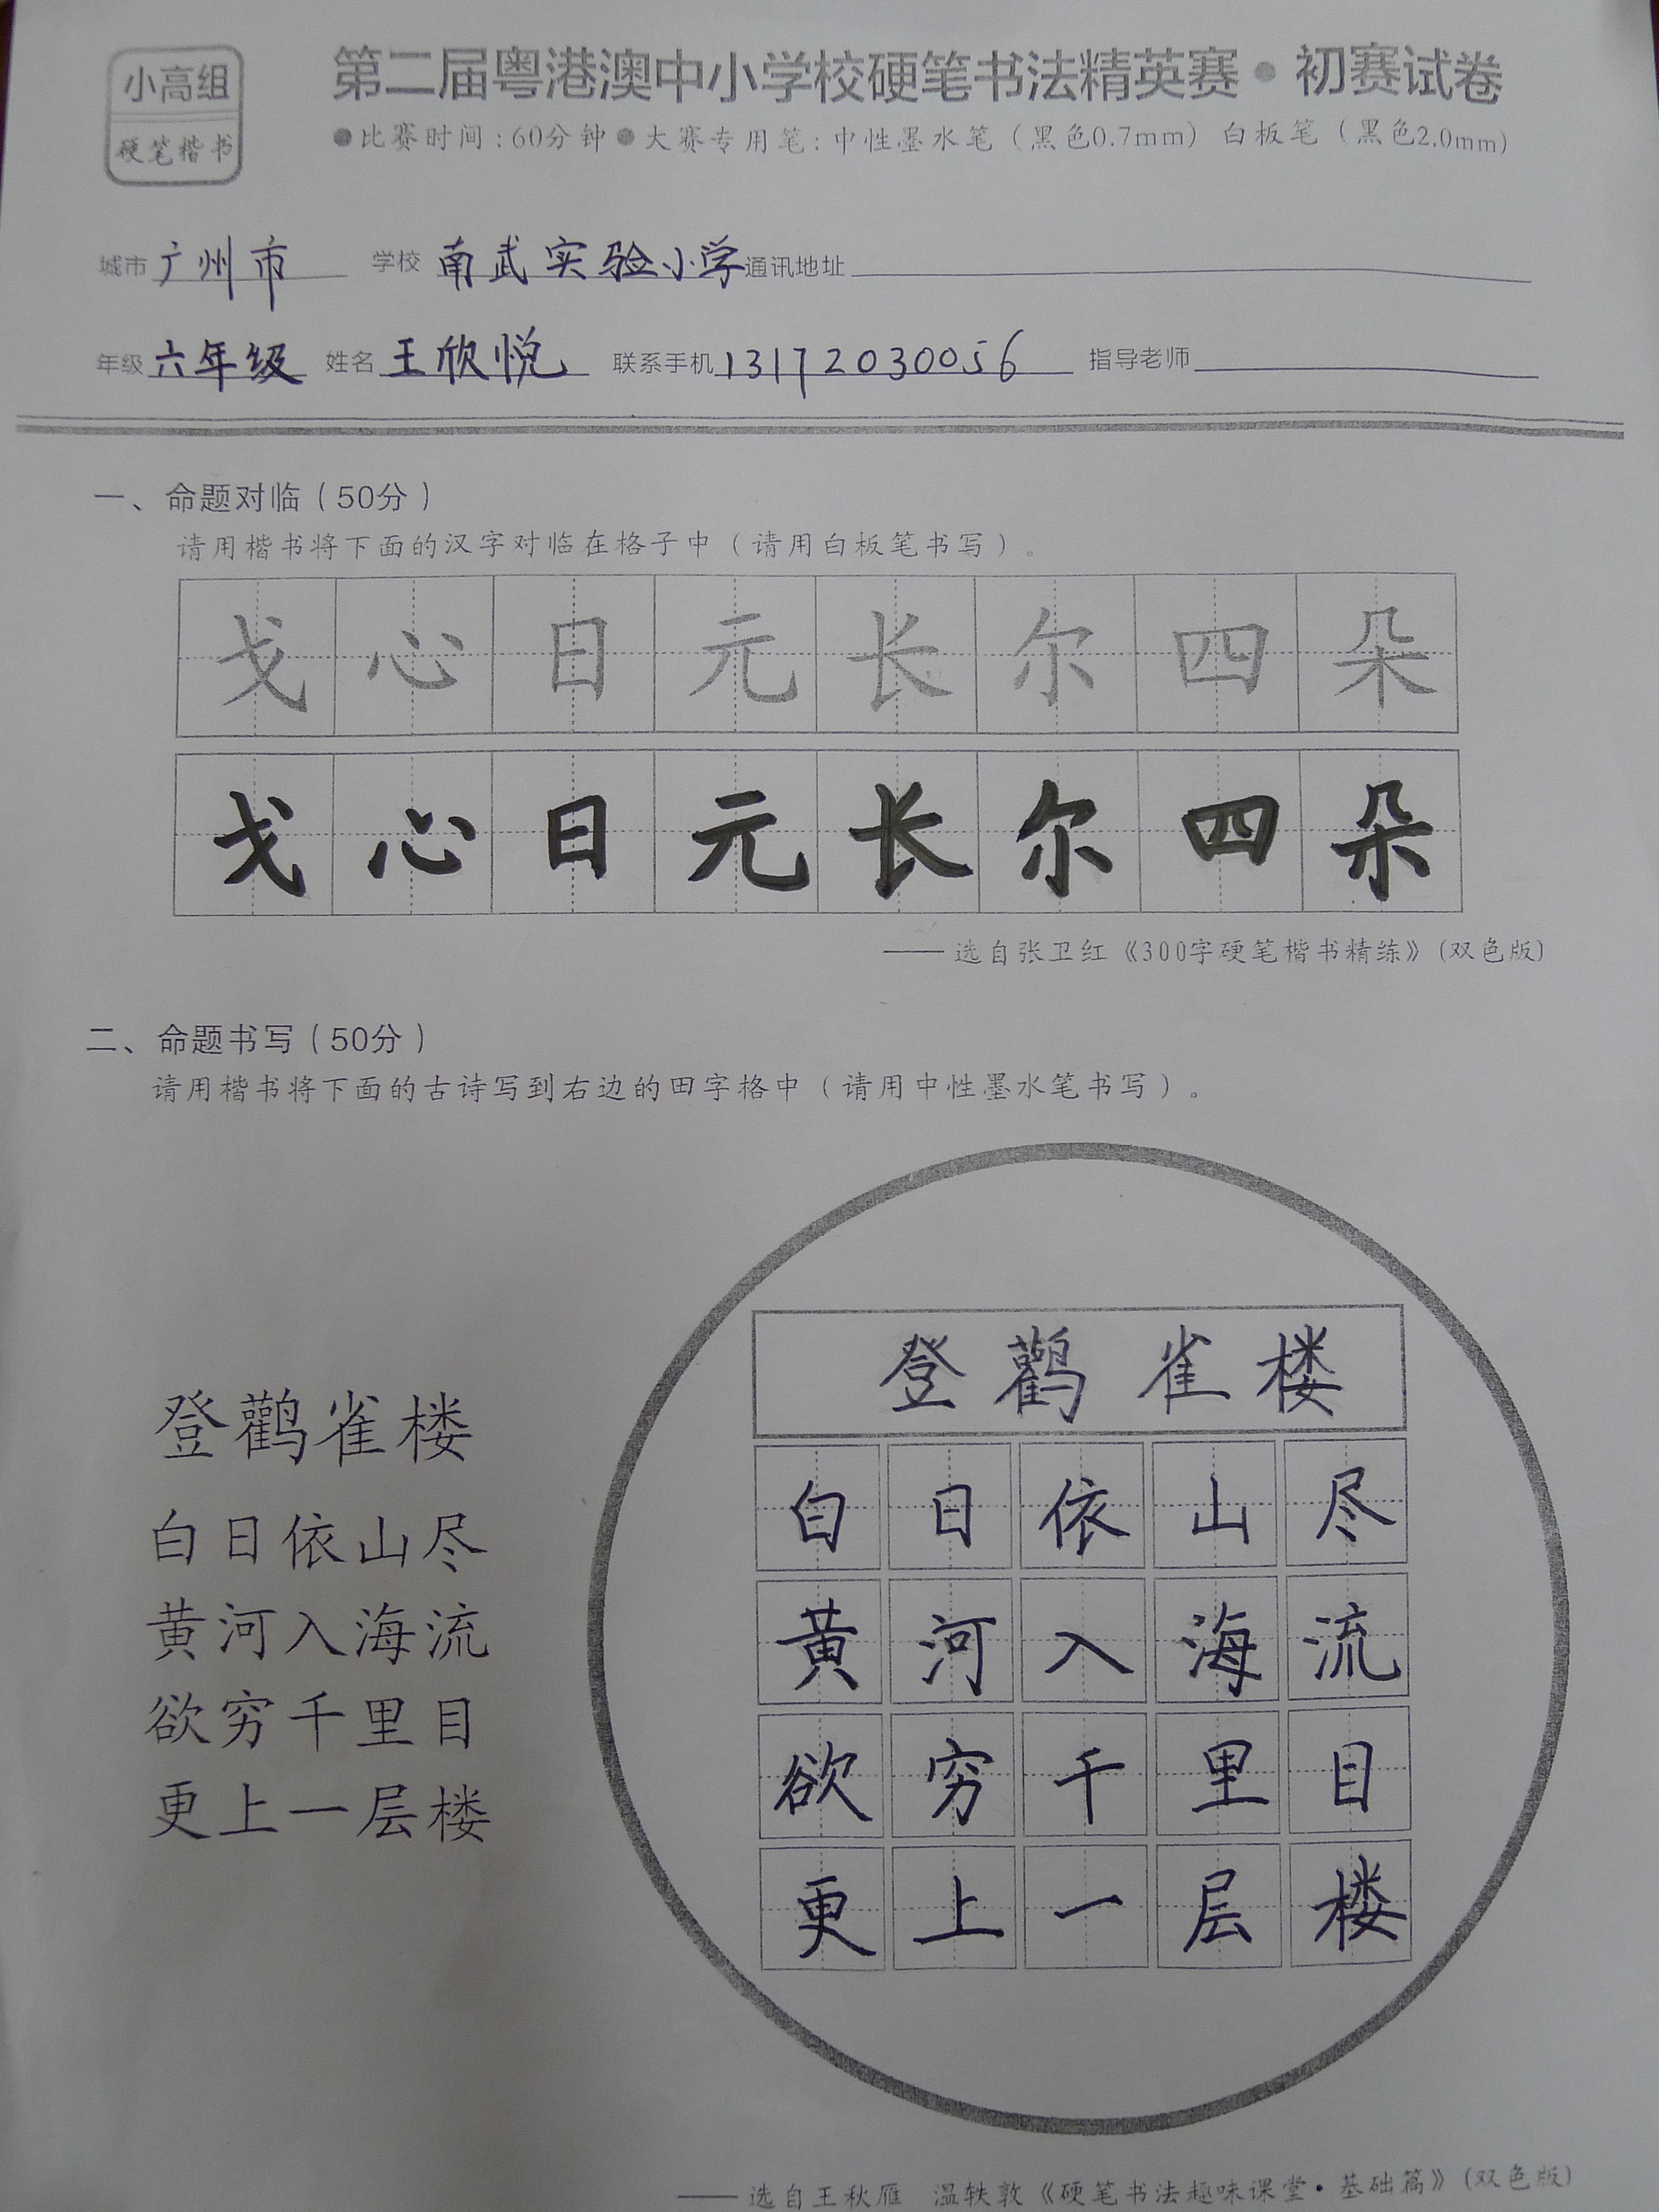 小高组
硬笔楷书
第二届粤港澳中小学校硬笔书法精英赛·初赛试卷
●比赛时间:60分钟●大赛专用笔:中性墨水笔(黑色0.7mm)白板笔(黑色2.0mm)
城市 广州市 学校 南武实验小学 通讯地址
年级 六年级 姓名 王欣悦 联系手机 13172030056 指导老师
一、命题对临(50分)
请用楷书将下面的汉字对临在格子中(请用白板笔书写)。
戈心日元长尔四朵
戈心日元长尔四朵
——选自张卫红《300字硬笔楷书精练》(双色版)
二、命题书写(50分)
请用楷书将下面的古诗写到右边的田字格中(请用中性墨水笔书写)。
登鹳雀楼
白日依山尽
黄河入海流
欲穷千里目
更上一层楼
登鹳雀楼
白日依山尽
黄河入海流
欲穷千里目
更上一层楼
——选自王秋雁 温轶敦《硬笔书法趣味课堂·基础篇》(双色版)